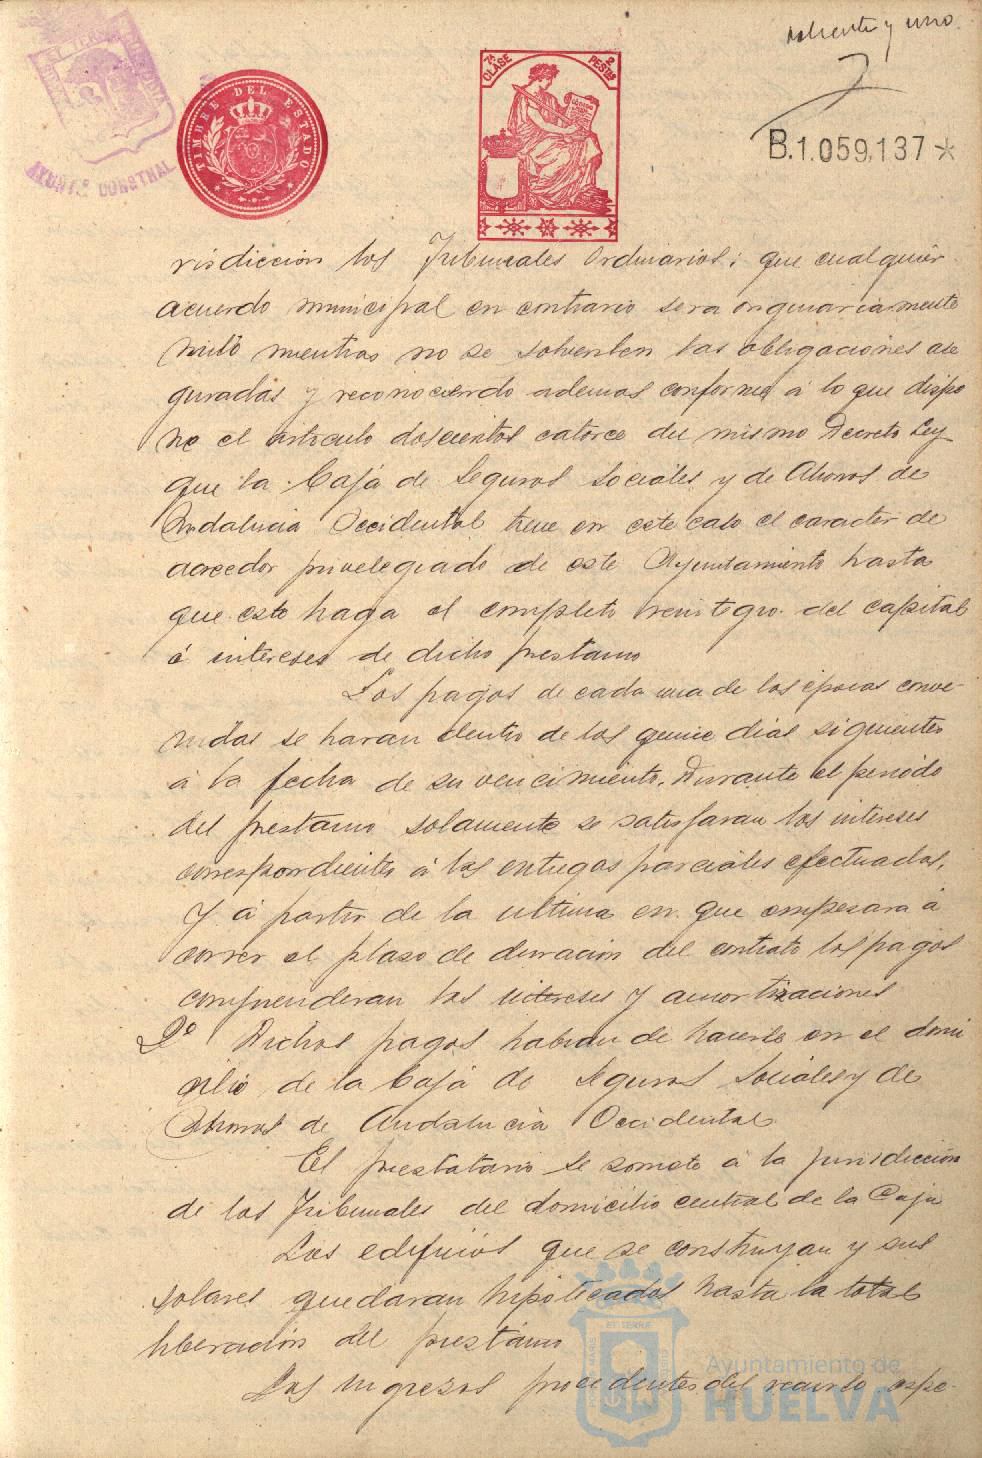 ochenta y uno.
TIMBRE DEL ESTADO
7ª CLASE
2 PESETAS
AYUNTº CONSTNAL
B.1.059,137*
risdiccion los Tribunales Ordinarios; que cualquier
acuerdo municipal en contrario sera originariamente
nulo mientras no se solventen las obligaciones ase
guradas y reconociendo ademas conforme á lo que dispo
ne el articulo doscientos catorce del mismo Decreto Ley
que la Caja de Seguros Sociales y de Ahorros de
Andalucia Occidental tiene en este caso el caracter de
acreedor privelegiado de este Ayuntamiento hasta
que este haga el completo reintegro del capital
é intereses de dicho prestamo
Los pagos de cada una de las épocas conve-
nidas se haran dentro de los quince dias siguientes
á la fecha de su vencimiento. Durante el periodo
del prestamo solamente se satisfaran los intereses
correspondientes á las entregas parciales efectuadas,
Y á partir de la ultima en que empesara á
correr el plaso de duracion del contrato los pagos
comprenderan los intereses y amortizaciones
2º Dichos pagos habran de hacerse en el domi
cilio de la Caja de Seguros Sociales y de
Ahorros de Andalucia Occidental
El prestatario se somete á la jurisdiccion
de los Tribunales del domicilio central de la Caja
Los edificios que se construyan y sus
solares quedaran hipotecados hasta la total
liberacion del prestamo
Los ingresos procedentes del recurso espe-
Ayuntamiento de
HUELVA